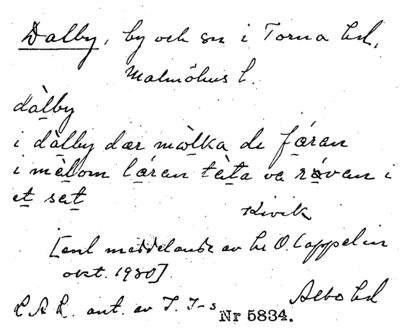 Dalby, by och sn i Torna hd,
Malmöhus l.
dàlby
i dàlby dær mòlka de fáran
i mèlom láran tèta va róvan i
et set
Kivik
[enl meddelande av hr O. Cappelin
okt. 1930]
Albo hd
L A L. ant. av I. I-s
Nr 5834.